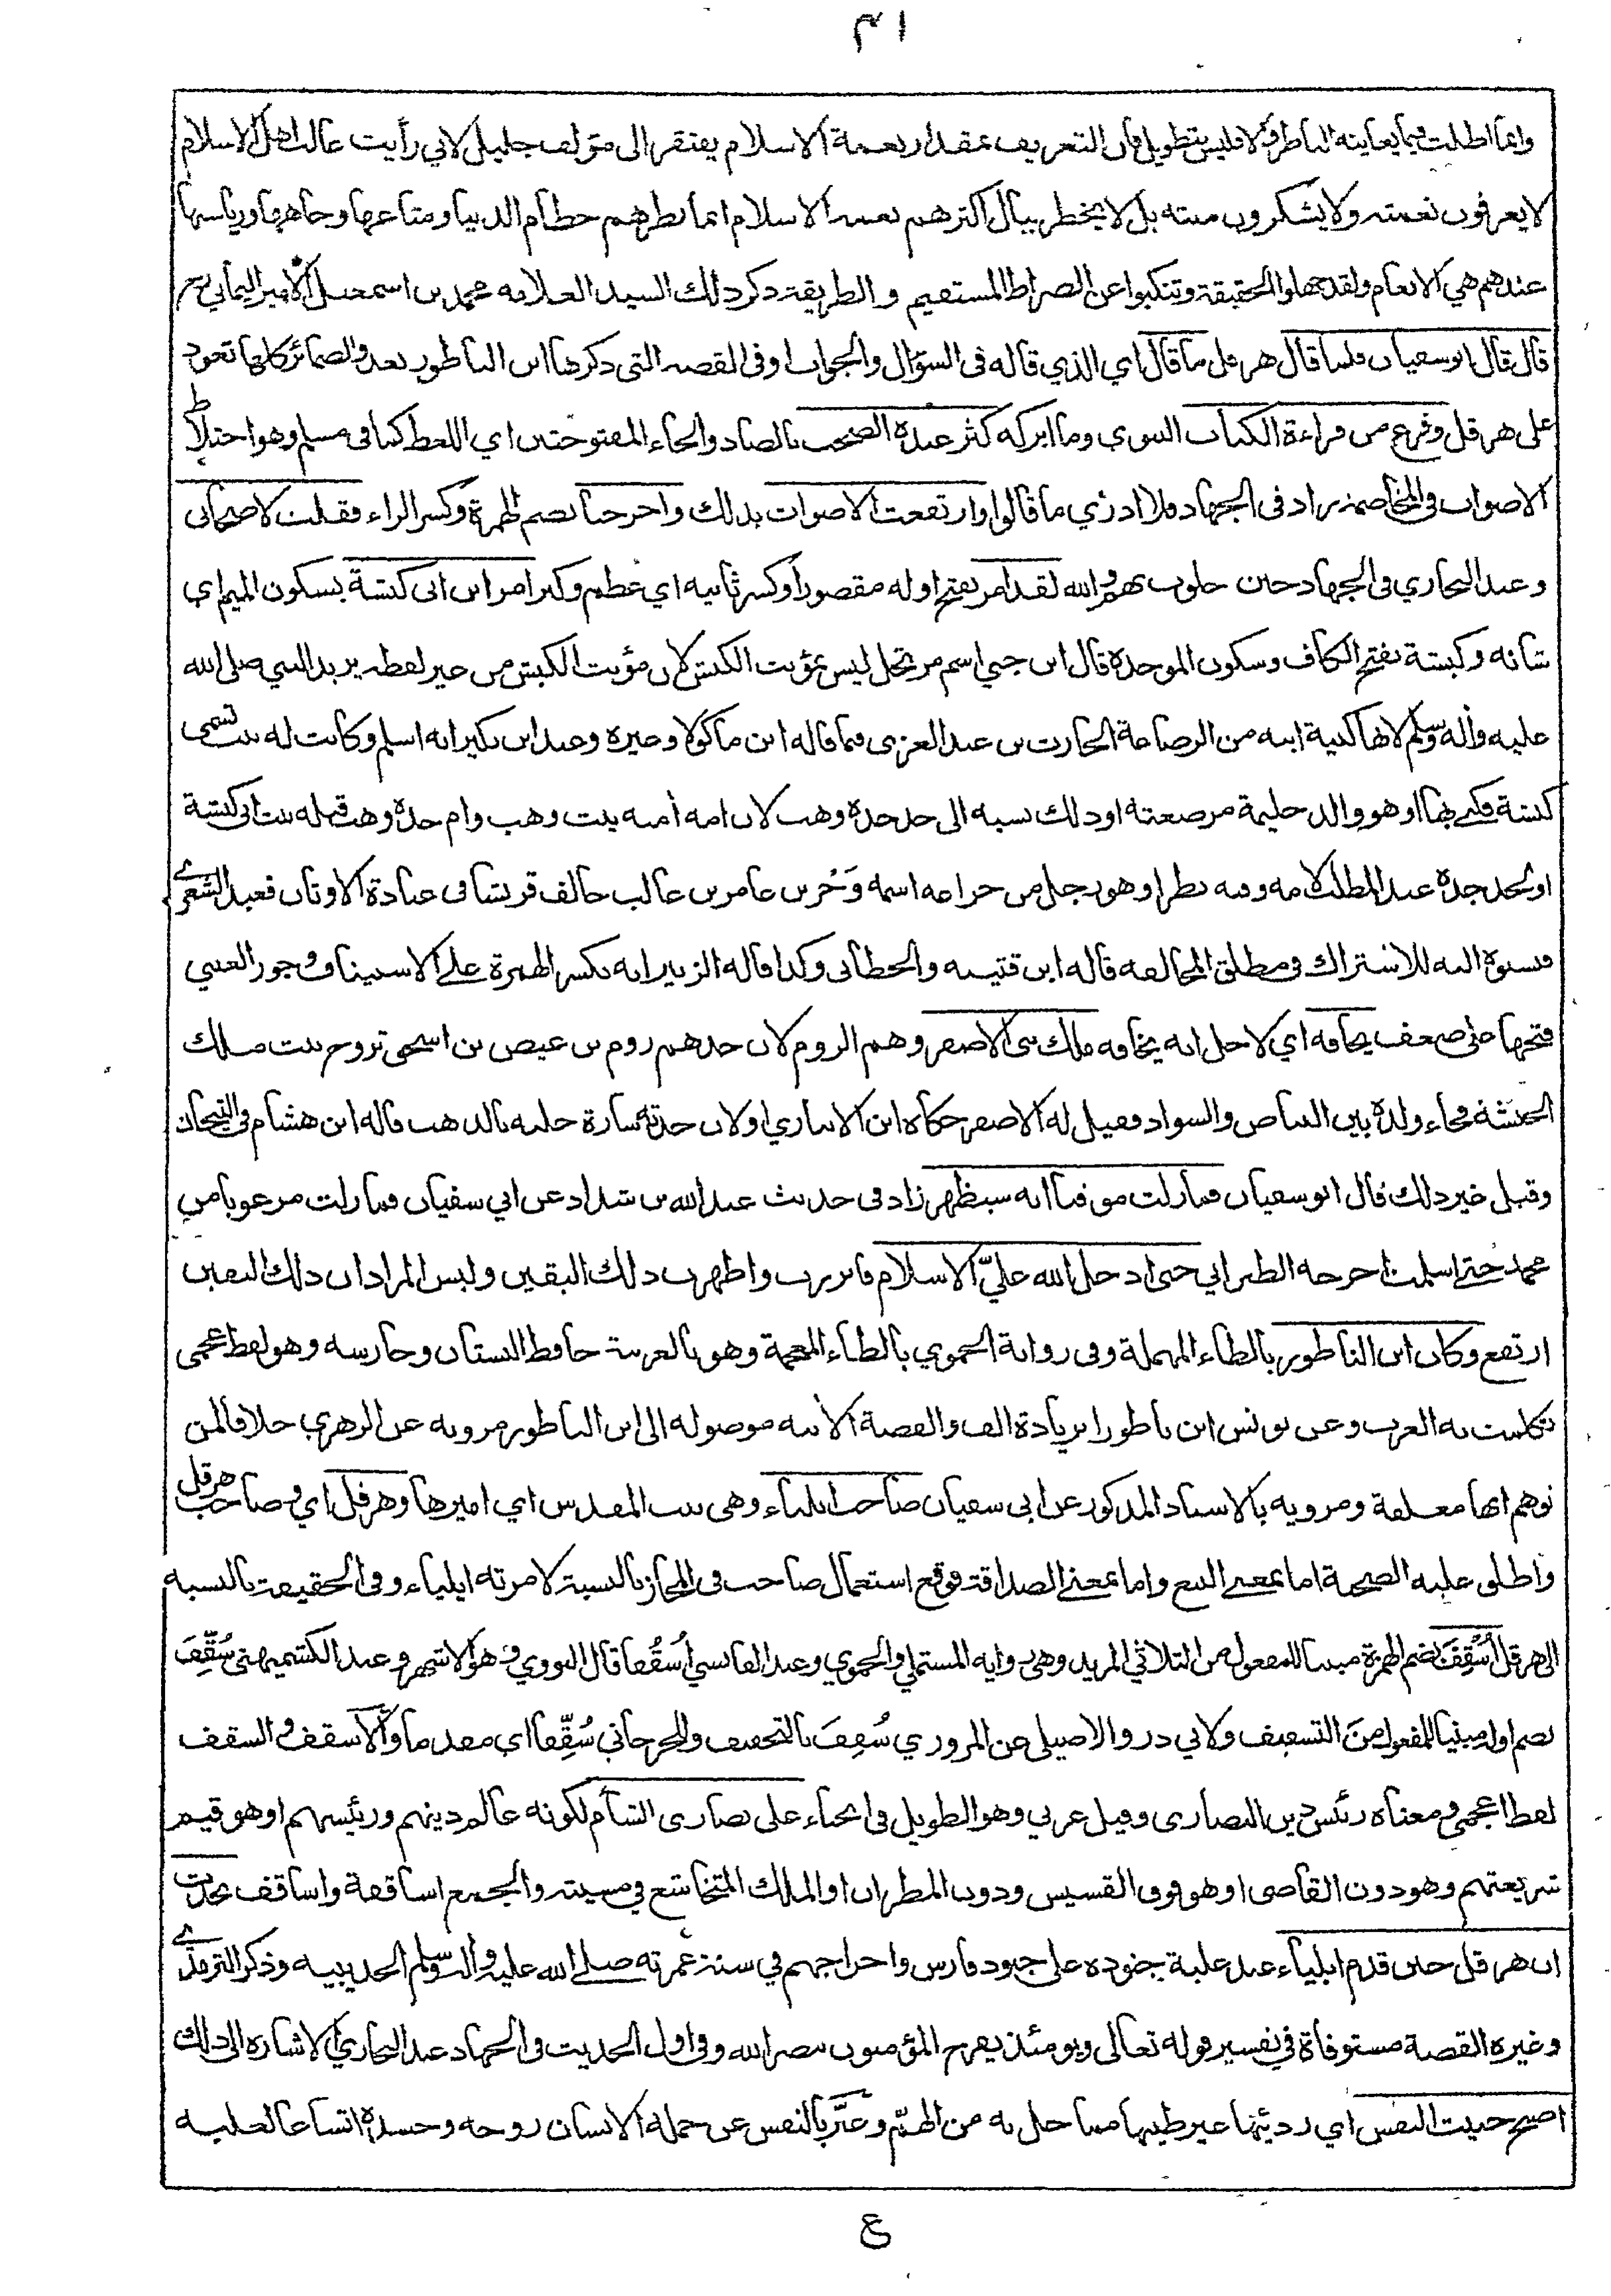 ٣١
وانما اطلت فيما يعاينه الناظر والا فليس بتطويل فان التعريف بمقدار نعمة الاسلام يفتقر الى مؤلف جليل لاني رأيت غالب اهل الاسلام
لا يعرفون نعمته ولا يشكرون منته بل لا يخطر ببال اكثرهم نعمة الاسلام انما نظرهم حطام الدنيا ومتاعها وجاهها ورياستها
عندهم هي الانعام ولقد جهلوا الحقيقة وتنكبوا عن الصراط المستقيم والطريقة ذكر ذلك السيد العلامه محمد بن اسمعيل الامير اليماني رح
قال قال ابو سفيان فلما قال هرقل ما قال اي الذي قاله في السؤال والجواب او في القصه التي ذكرها ابن الناطور بعد والضمائر كلها تعود
على هرقل وفرغ من قراءة الكتاب النبوي وما ابركه كثر عنده الصخب بالصاد والخاء المفتوحتين اي اللغط كما في مسلم وهو اختلاط
الاصوات في المخاصمة زاد في الجهاد فلا ادري ما قالوا وارتفعت الاصوات بذلك واخرجنا بضم الهمزة وكسر الراء فقلت لاصحابي
وعند البخاري في الجهاد حين خلوت بهم والله لقد امر بفتح اوله مقصورا وكسر ثانيه اي عظم وكبر امر ابن ابي كبشة بسكون الميم اي
شانه وكبشة بفتح الكاف وسكون الموحدة قال ابن جني اسم مرتجل ليس بمؤنث الكبش لان مؤنث الكبش من غير لفظه يريد النبي صلى الله
عليه وأله وسلم لانها كنية ابيه من الرضاعة الحارث بن عبد العزى فيما قاله ابن ماكولا وغيره وعند ابن بكير انه اسلم وكانت له بنت تسمى
كبشة فكني بها او هو والد حليمة مرضعته او ذلك نسبه الى جد جده وهب لان امه أمنه بنت وهب وام جده وهب قيله بنت ابي كبشة
او لجد جده عبد المطلب لامه وفيه نظر او هو رجل من خزاعه اسمه وَجْز بن عامر بن غالب خالف قريشا في عبادة الاوثان فعبد الشعرى
فنسبوه اليه للاشتراك في مطلق المخالفه قاله ابن قتيبه والخطابي وكذا قاله الزبير انه بكسر الهمزة على الاستيناف وجوز العيني
فتحها على ضعف يخافه اي لاجل انه يخافه ملك بني الاصفر وهم الروم لان جدهم روم بن عيص بن اسحق تزوج بنت ملك
الحبشة فجاء ولده بين البياض والسواد فقيل له الاصفر حكاه ابن الانباري او لان جدته سارة حلته بالذهب قاله ابن هشام في التيجان
وقيل غير ذلك قال ابو سفيان فما زلت موقنا انه سيظهر زاد في حديث عبد الله بن شداد عن ابي سفيان فما زلت مرعوبا من
محمد حتى اسلمت اخرجه الطبراني حتى ادخل الله عليّ الاسلام فابرزت واظهرت ذلك اليقين وليس المراد ان ذلك اليقين
ارتفع وكان ابن الناطور بالطاء المهملة وفي رواية الحموي بالظاء المعجمة وهو بالعربية حافظ البستان وحارسه وهو لفظ اعجمي
تكلمت به العرب وعن يونس ابن ناطورا بزيادة الف والقصة الأتيه موصوله الى ابن الناطور مرويه عن الزهري خلافا لمن
توهم انها معلقة ومرويه بالاسناد المذكور عن ابي سفيان صاحب ايلياء وهي بيت المقدس اي اميرها وهرقل اي وصاحب هرقل
واطلق عليه الصحبة اما بمعنى التبع واما بمعنى الصداقة فوقع استعمال صاحب في المجاز بالنسبة لامرته ايلياء وفي الحقيقة بالنسبه
الى هرقل اُسْقِفَ بضم الهمزة مبنيا للمفعول من الثلاثي المزيد وهي روايه المستملي والحموي وعند القابسي اُسقُفا قال النووي وهو الاشهر وعند الكشميهني سُقِّفَ
بضم اوله مبنيا للمفعول منَ التسقيف ولابي ذر والاصيلي عن المروزي سُقِفَ بالتخفيف وللجرجاني سُقِّفا اي مقدما والأسقف والسقف
لفظ اعجمي ومعناه رئيس دين النصارى وقيل عربي وهو الطويل في انحناء على نصارى الشأم لكونه عالم دينهم ورئيسهم او هو قيم
شريعتهم وهو دون القاضي او هو فوق القسيس ودون المطران او الملك المتخاشع في مشيته والجمع اساقفة واساقف يحدث
ان هرقل حين قدم ايلياء عند غلبة جنوده على جنود فارس واخراجهم في سنة عمرته صلى الله عليه وأله وسلم الحديبيه وذكر الترمذي
وغيره القصة مستوفاة في تفسير قوله تعالى ويومئذ يفرح المؤمنون بنصر الله وفي اول الحديث في الجهاد عند البخاري الاشاره الى ذلك
اصبح خبيث النفس اي رديئها غير طيبها مما حل به من الهمّ وعبَّر بالنفس عن جملة الانسان روحه وجسده اتساعا لغلبه
ع